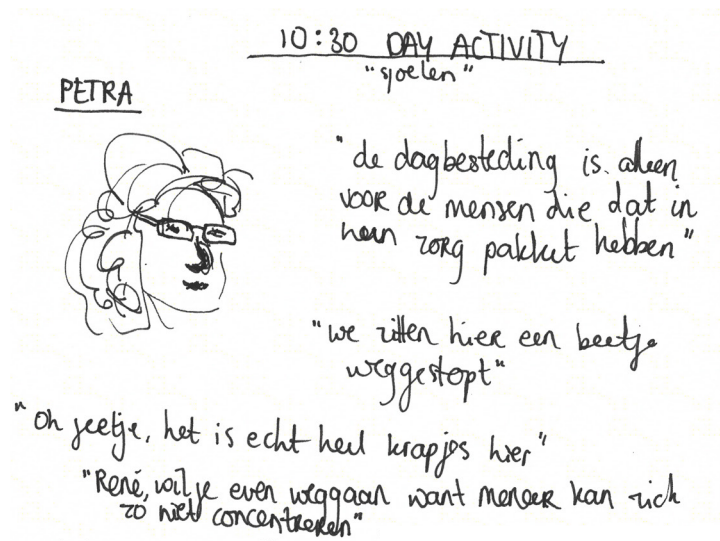 10:30 DAY ACTIVITY
"sjoelen"
PETRA
"de dagbesteding is alleen
voor de mensen die dat in
hun zorg pakket hebben"
"we zitten hier een beetje
weggestopt"
"Oh jeetje, het is echt heel krapjes hier"
"René, wil je even weggaan want meneer kan zich
zo niet concentreren"